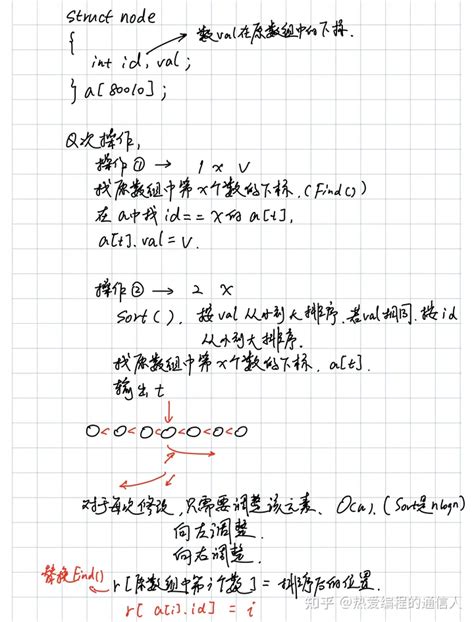 struct node
{
int id, val; 数val在原数组中的下标.
} a[80010];
Q次操作,
操作① → 1 x v
找原数组中第x个数的下标. (Find())
在a中找 id == x 的 a[t],
a[t].val = v.
操作② → 2 x
Sort(). 按val从小到大排序. 若val相同, 按id
从小到大排序.
找原数组中第x个数的下标. a[t].
输出t
对于每次修改, 只需要调整该元素. O(n). (Sort是nlogn)
向左调整.
向右调整.
替换Find()
r[原数组中第i个数] = 排序后的位置.
r[a[i].id] = i
知乎 @热爱编程的通信人